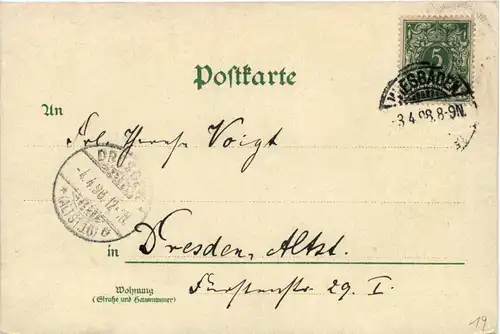 5
WIESBADEN
-3.4.98.8-9N.
Postkarte
An
Voigt
DRESDEN-
-4.4.98.12-1N.
*(ALTST.16)
in Dresden, Altst.
Wohnung
(Straße und Hausnummer)
Fürstenstr. 29. I.
19